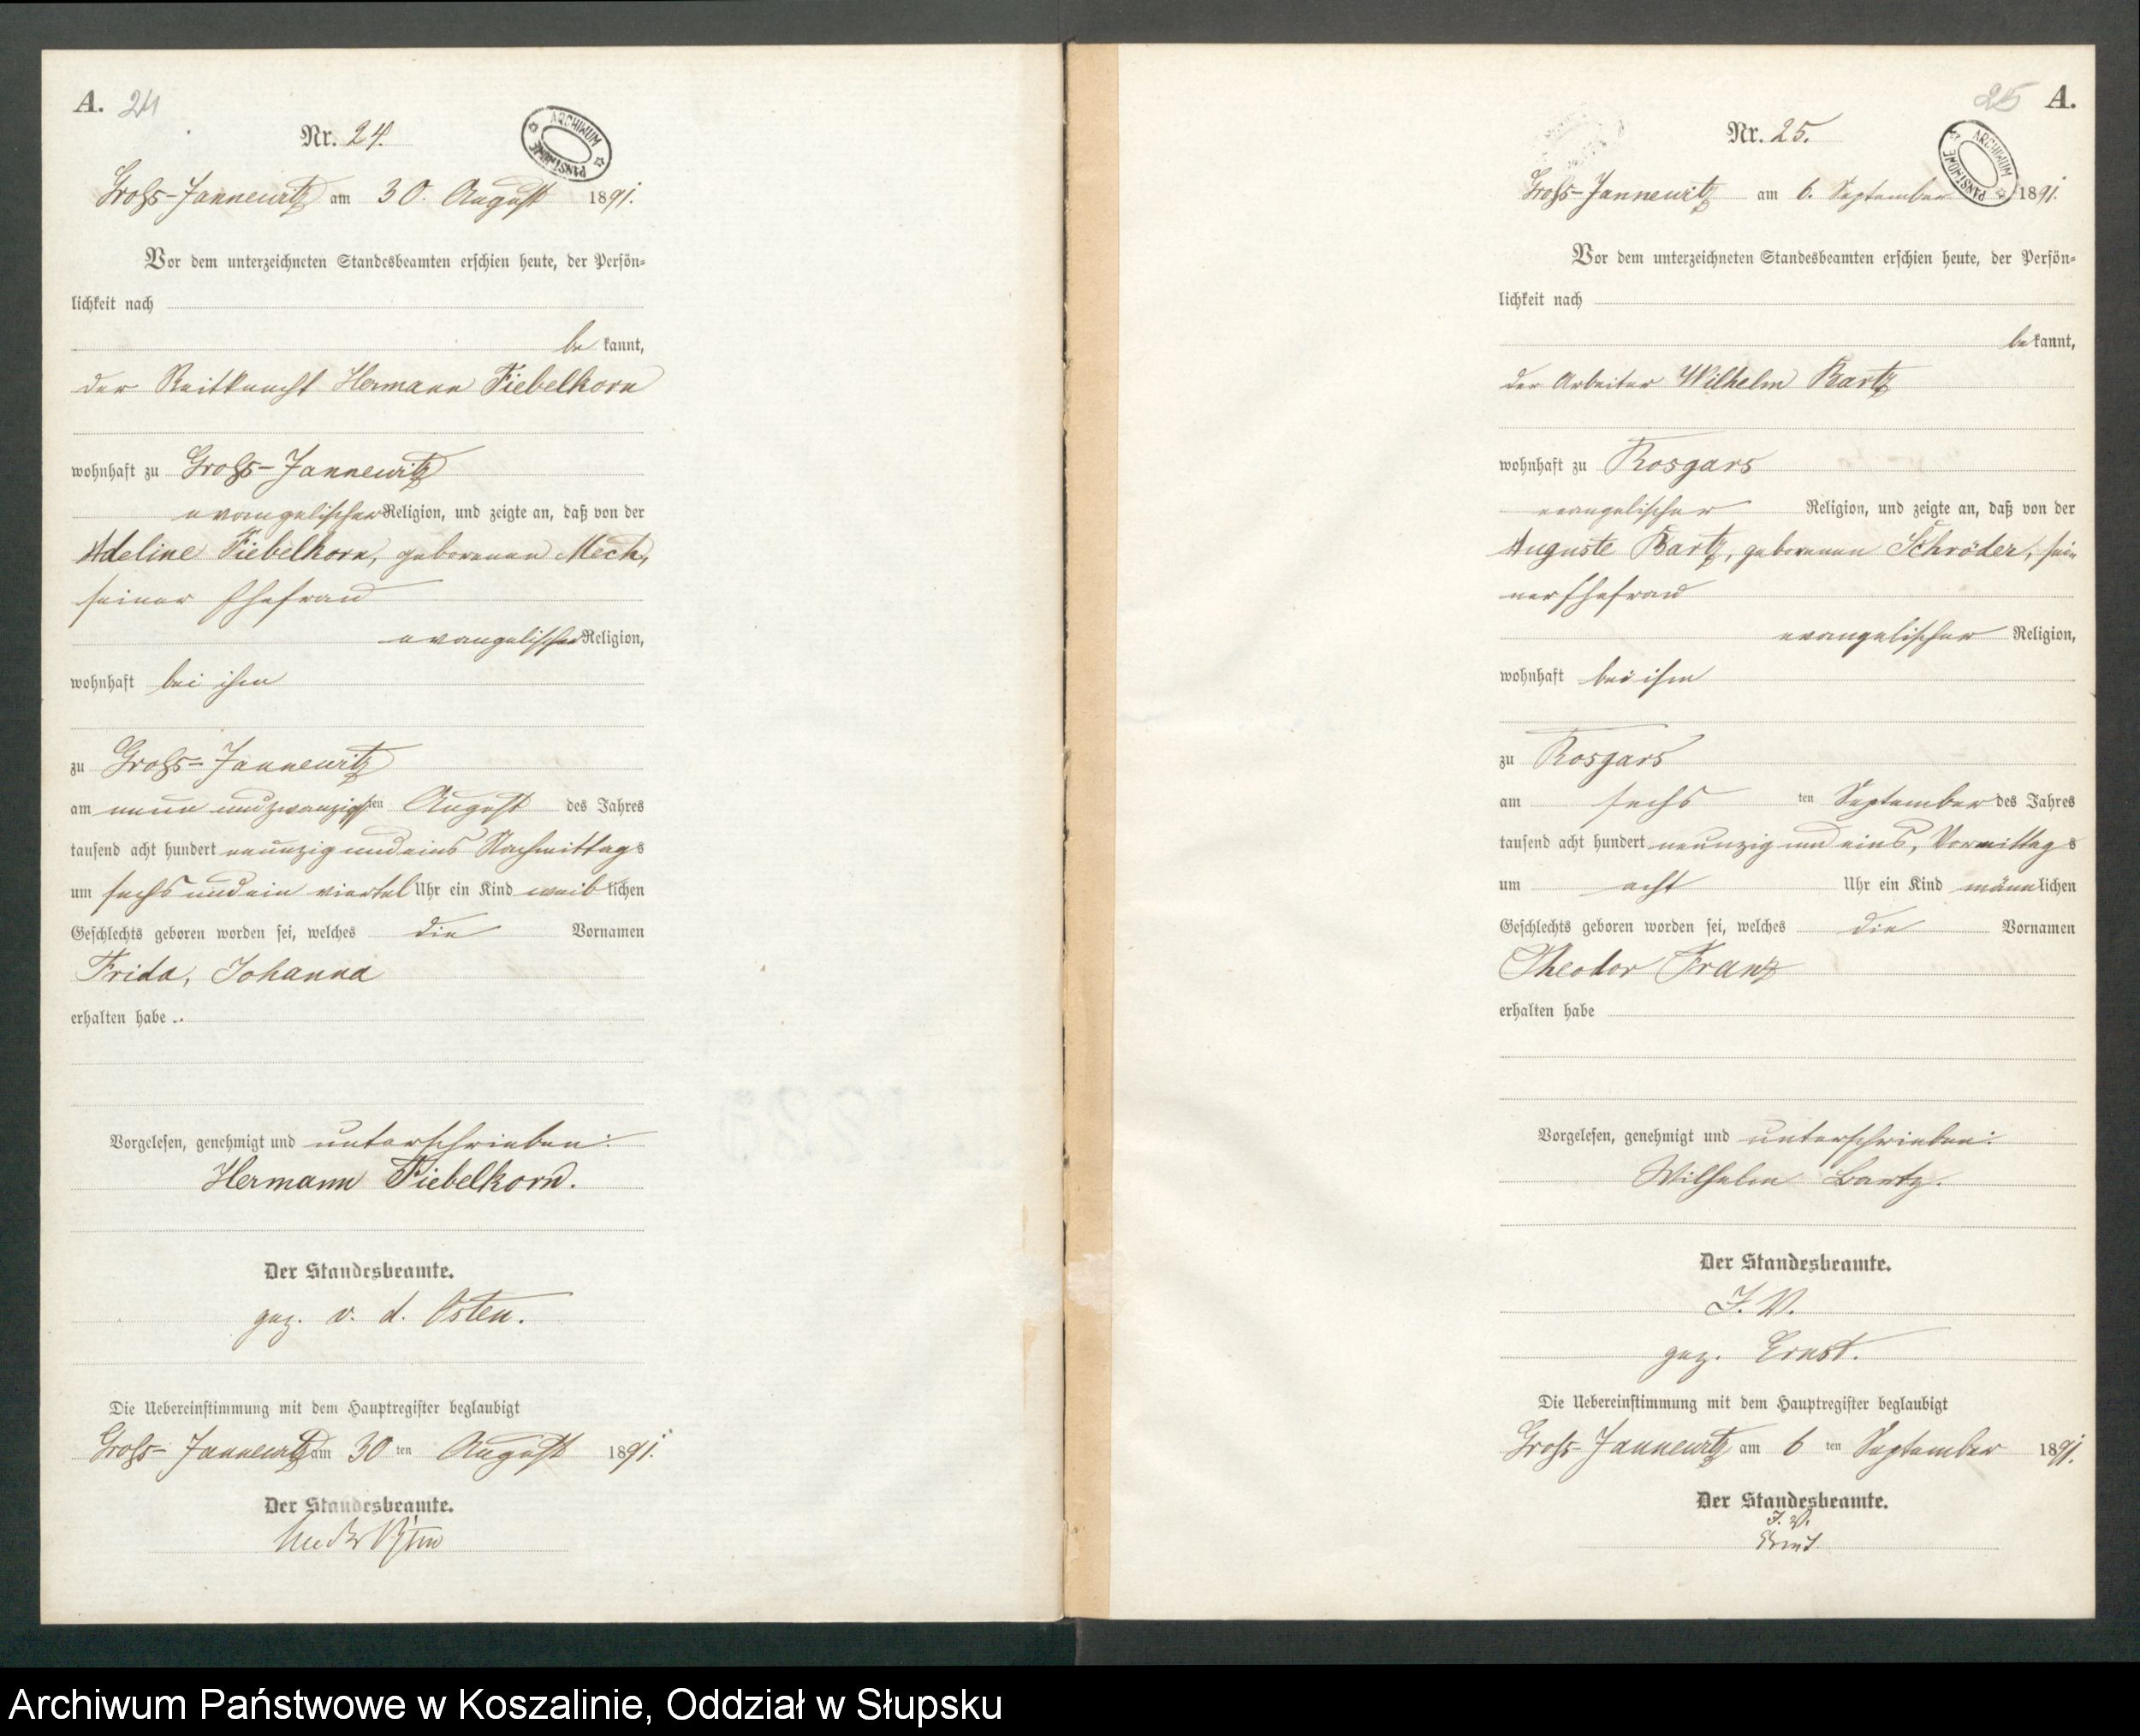 A. 24
Nr. 24.
ARCHIWUM PAŃSTWOWE
Groß-Jannewitz am 30. August 1891.
Vor dem unterzeichneten Standesbeamten erschien heute, der Persön-
lichkeit nach
be kannt,
der Reitknecht Hermann Fiebelkorn
wohnhaft zu Groß-Jannewitz
evangelischer Religion, und zeigte an, daß von der
Adeline Fiebelkorn, geborenen Mech,
seiner Ehefrau
evangelischer Religion,
wohnhaft bei ihm
zu Groß-Jannewitz
am neun und zwanzigsten August des Jahres
tausend acht hundert neunzig und eins Nachmittags
um sechs und ein viertel Uhr ein Kind weiblichen
Geschlechts geboren worden sei, welches die Vornamen
Frida, Johanna
erhalten habe.
Vorgelesen, genehmigt und unterschrieben:
Hermann Fiebelkorn.
Der Standesbeamte.
gez. v. d. Osten.
Die Uebereinstimmung mit dem Hauptregister beglaubigt
Groß-Jannewitz am 30 ten August 1891.
Der Standesbeamte.
25 A.
Nr. 25.
ARCHIWUM PAŃSTWOWE
Groß-Jannewitz am 6. September 1891.
Vor dem unterzeichneten Standesbeamten erschien heute, der Persön-
lichkeit nach
be kannt,
der Arbeiter Wilhelm Bartz
wohnhaft zu Rosgars
evangelischer Religion, und zeigte an, daß von der
Auguste Bartz, geborenen Schröder, sei-
ner Ehefrau
evangelischer Religion,
wohnhaft bei ihm
zu Rosgars
am sechs ten September des Jahres
tausend acht hundert neunzig und eins, Vormittags
um acht Uhr ein Kind männlichen
Geschlechts geboren worden sei, welches die Vornamen
Theodor Franz
erhalten habe
Vorgelesen, genehmigt und unterschrieben:
Wilhelm Bartz.
Der Standesbeamte.
I. V.
gez. Ernst.
Die Uebereinstimmung mit dem Hauptregister beglaubigt
Groß-Jannewitz am 6 ten September 1891.
Der Standesbeamte.
I. V.
Ernst
Archiwum Państwowe w Koszalinie, Oddział w Słupsku